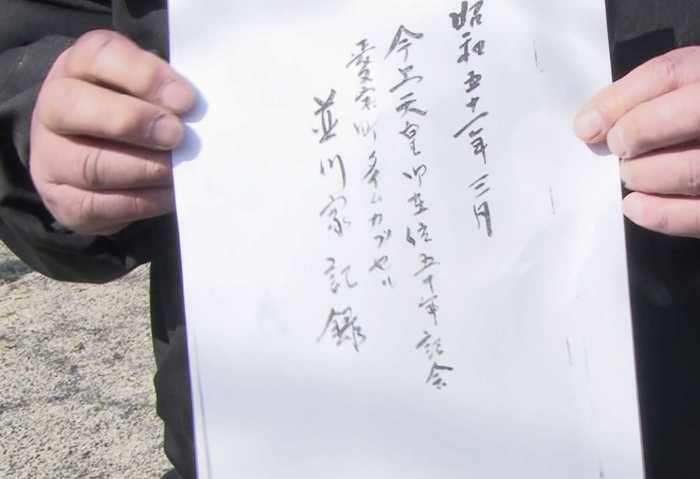 昭和五十一年三月
今上天皇御在位五十年記念
愛宕町タイムカプセル
並川家記録